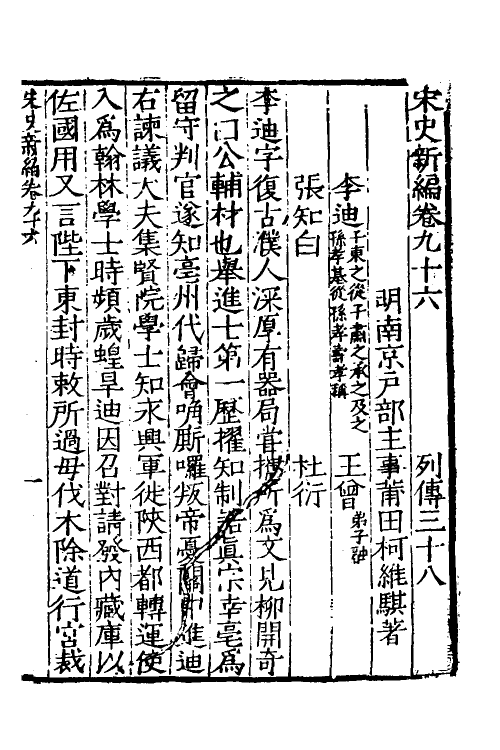 宋史新編卷九十六 列傳三十八
明南京戶部主事莆田柯維騏著
李迪 子柬之從子肅之承之及之 孫孝基從孫孝壽孝稱 王曾 弟子融
張知白 杜衍
李迪字復古濮人深厚有器局嘗攜所爲文見柳開奇
之曰公輔材也舉進士第一歷擢知制誥眞宗幸亳爲
留守判官遂知亳州代歸會唃厮囉叛帝憂關中進迪
右諫議大夫集賢院學士知永興軍徙陝西都轉運使
入爲翰林學士時頻歲蝗旱迪因召對請發內藏庫以
佐國用又言陛下東封時敕所過毋伐木除道行宮裁
宋史新編卷九十六 一